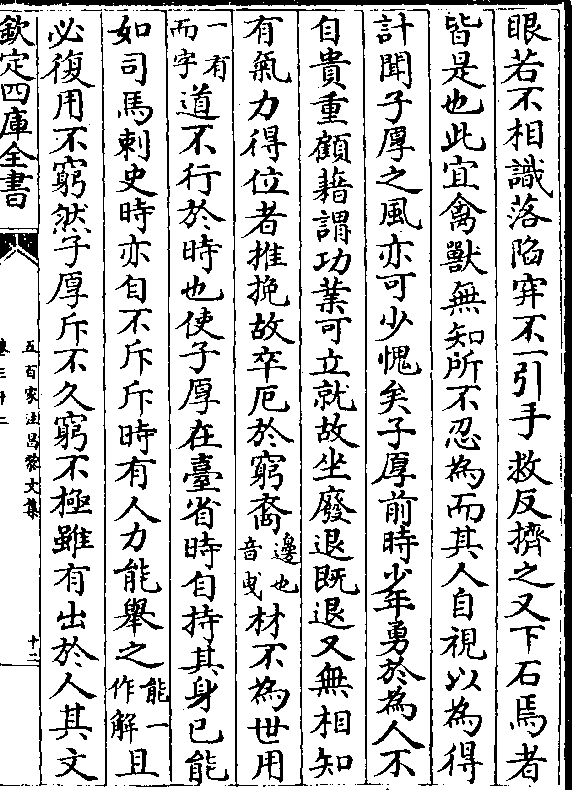 眼若不相識落陷穽不一引手救反擠之又下石焉者
皆是也此宜禽獸無知所不忍為而其人自視以為得
計聞子厚之風亦可少愧矣子厚前時少年勇於為人不
自貴重顧藉謂功業可立就故坐廢退既退又無相知
有氣力得位者推挽故卒厄於窮裔邊也音曳材不為世用
一有而字道不行於時也使子厚在臺省時自持其身已能
如司馬刺史時亦自不斥斥時有人力能舉之能一作解且
必復用不窮然子厚斥不久窮不極雖有出於人其文
欽定四庫全書
五百家注昌黎文集
卷三十二
十二